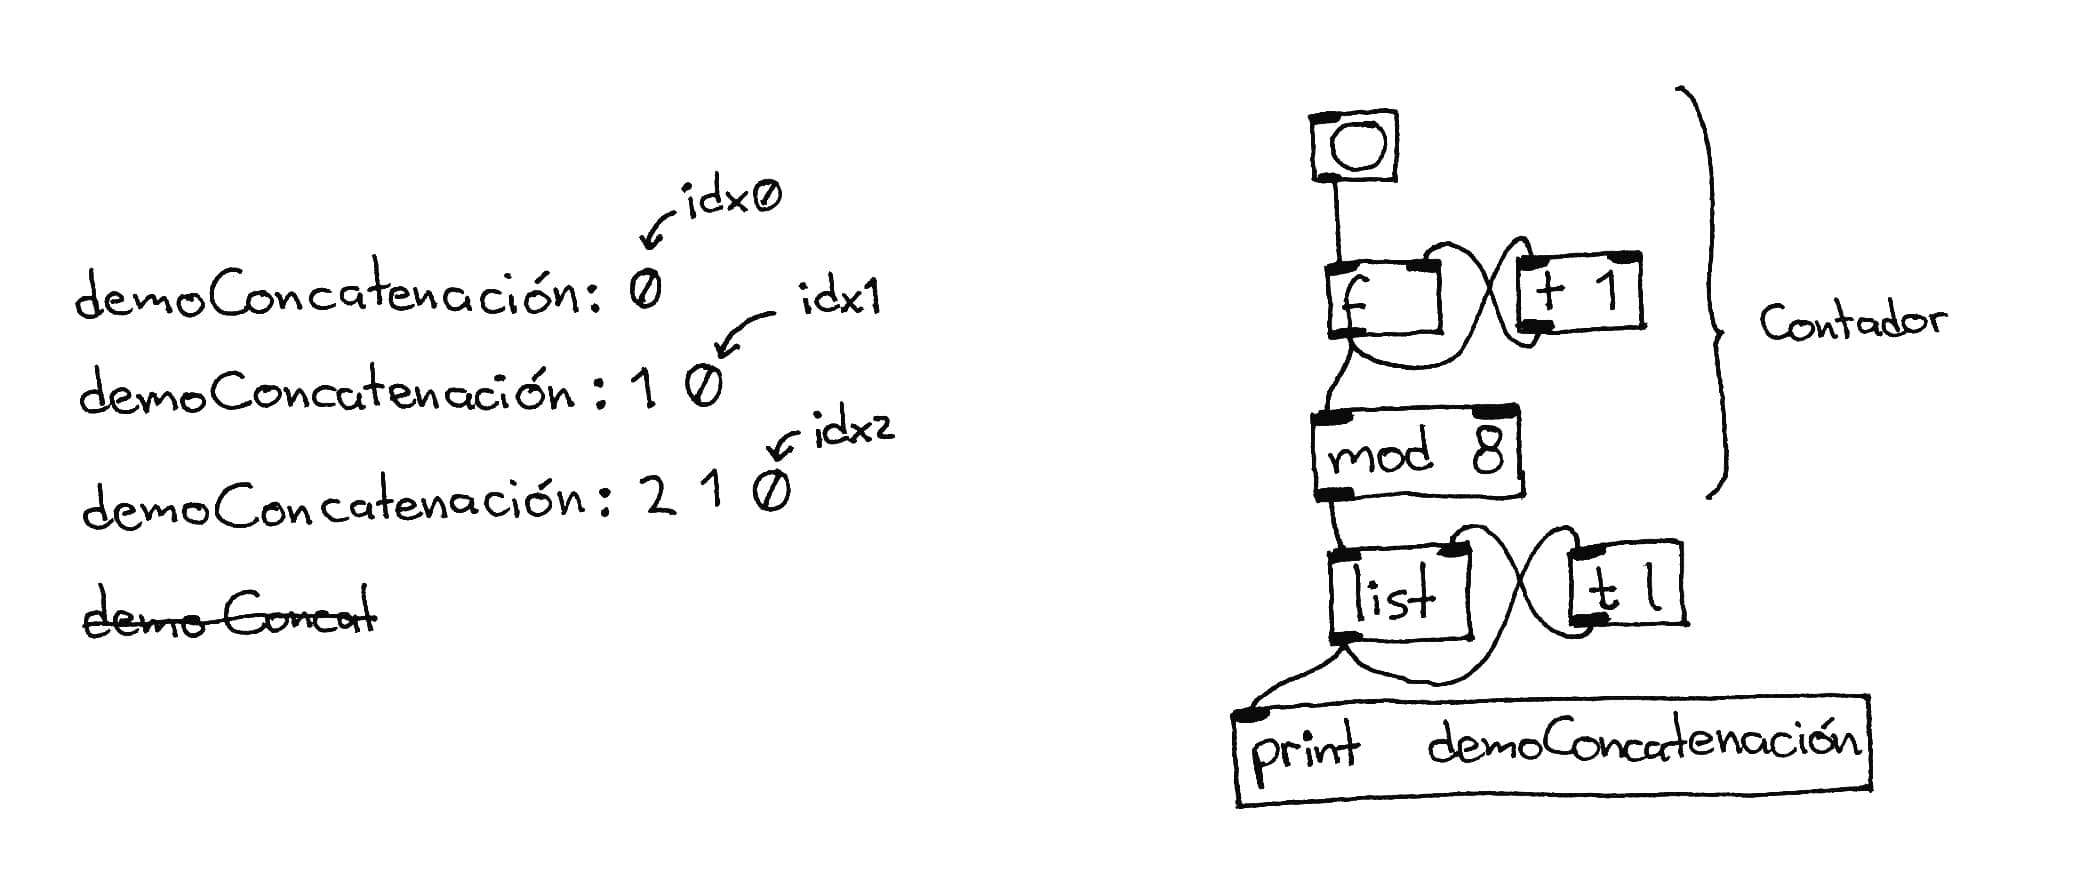 idx0
demoConcatenación: 0
idx1
demoConcatenación: 1 0
idx2
demoConcatenación: 2 1 0
demo Concat
f
+ 1
mod 8
Contador
list
t l
print demoConcatenación